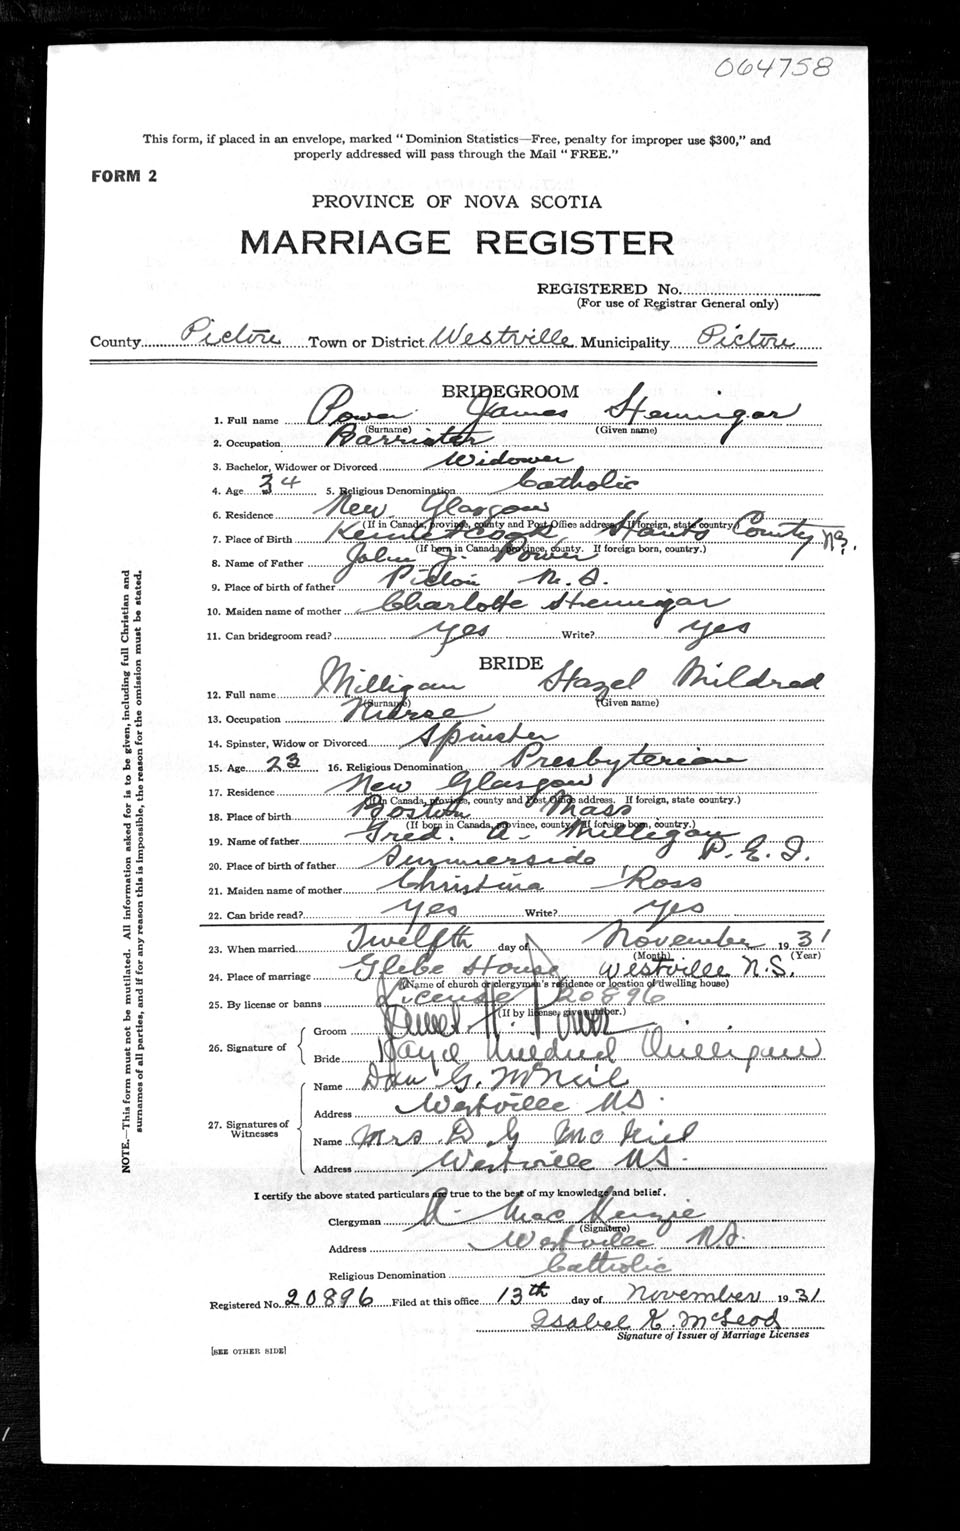 064758
This form, if placed in an envelope, marked "Dominion Statistics—Free, penalty for improper use $300," and
properly addressed will pass through the Mail "FREE."
FORM 2
PROVINCE OF NOVA SCOTIA
MARRIAGE REGISTER
REGISTERED No.
(For use of Registrar General only)
County Pictou Town or District Westville Municipality Pictou
BRIDEGROOM
1. Full name Power James Hennigar
(Surname) (Given name)
2. Occupation Barrister
3. Bachelor, Widower or Divorced Widower
4. Age 34 5. Religious Denomination Catholic
6. Residence New Glasgow
(If in Canada, province, county and Post Office address. If foreign, state country.)
7. Place of Birth Kennetcook Hants County N.S.
(If born in Canada, province, county. If foreign born, country.)
8. Name of Father John J. Power
9. Place of birth of father Pictou N.S.
10. Maiden name of mother Charlotte Hennigar
11. Can bridegroom read? yes Write? yes
BRIDE
12. Full name Milligan Hazel Mildred
(Surname) (Given name)
13. Occupation Nurse
14. Spinster, Widow or Divorced Spinster
15. Age 23 16. Religious Denomination Presbyterian
17. Residence New Glasgow
(If in Canada, province, county and Post Office address. If foreign, state country.)
18. Place of birth Boston Mass
(If born in Canada, province, county. If foreign born, country.)
19. Name of father Fred. A. Milligan
20. Place of birth of father Summerside P.E.I.
21. Maiden name of mother Christina Ross
22. Can bride read? yes Write? yes
23. When married Twelfth day of November 1931
(Month) (Year)
24. Place of marriage Glebe House, Westville N.S.
(Name of church or clergyman's residence or location of dwelling house)
25. By license or banns License 20896
(If by license, give number.)
26. Signature of
Groom James H. Power
Bride Hazel Mildred Milligan
27. Signatures of Witnesses
Name Dan G. McNeil
Address Westville N.S.
Name Mrs D G McNeil
Address Westville N.S.
I certify the above stated particulars are true to the best of my knowledge and belief.
Clergyman R. MacKenzie
(Signature)
Address Westville N.S.
Religious Denomination Catholic
Registered No. 20896 Filed at this office 13th day of November 1931
Isabel K. McLeod
Signature of Issuer of Marriage Licenses
[SEE OTHER SIDE]
NOTE.—This form must not be mutilated. All information asked for is to be given, including full Christian and
surnames of all parties, and if for any reason this is impossible, the reason for the omission must be stated.